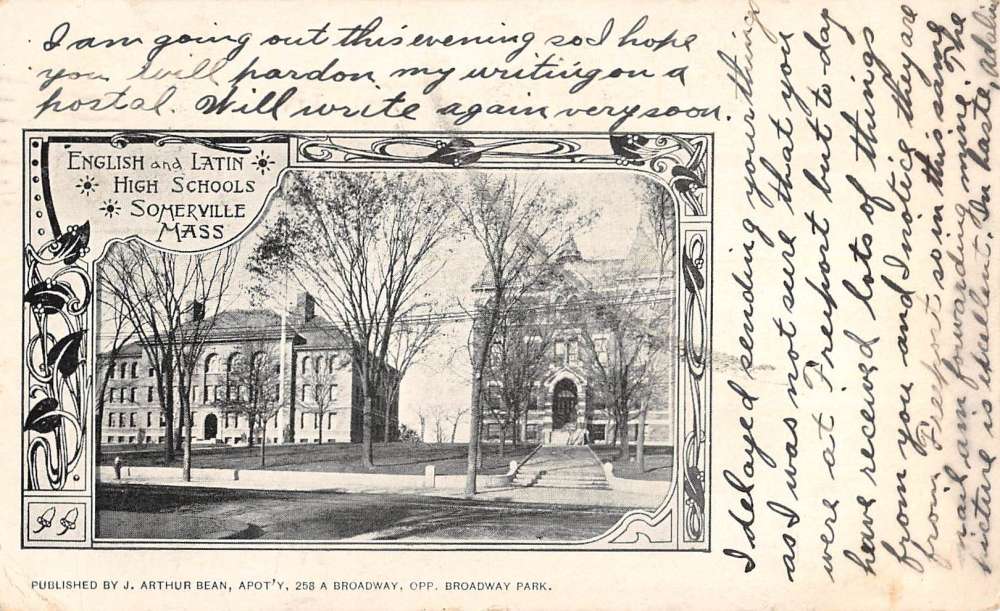 I am going out this evening so I hope
you will pardon my writing on a
postal. Will write again very soon.
ENGLISH and LATIN
HIGH SCHOOLS
SOMERVILLE
MASS
I delayed sending your things
as I was not sure that you
were at Freeport but to-day
have received lots of things
from you and I notice they are
from Freeport so in this same
mail am forwarding mine. The
picture is excellent. In haste,
PUBLISHED BY J. ARTHUR BEAN, APOT'Y, 258 A BROADWAY, OPP. BROADWAY PARK.